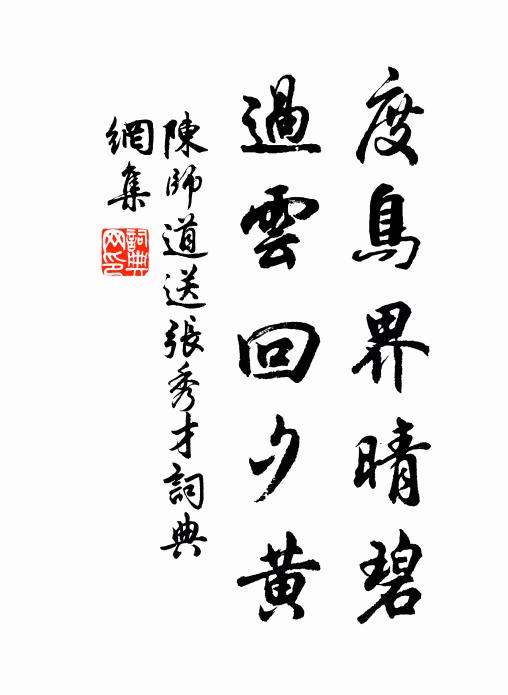 度鳥界晴碧
過雲回夕黃
陳師道送張秀才詞典
網集
詞典網印